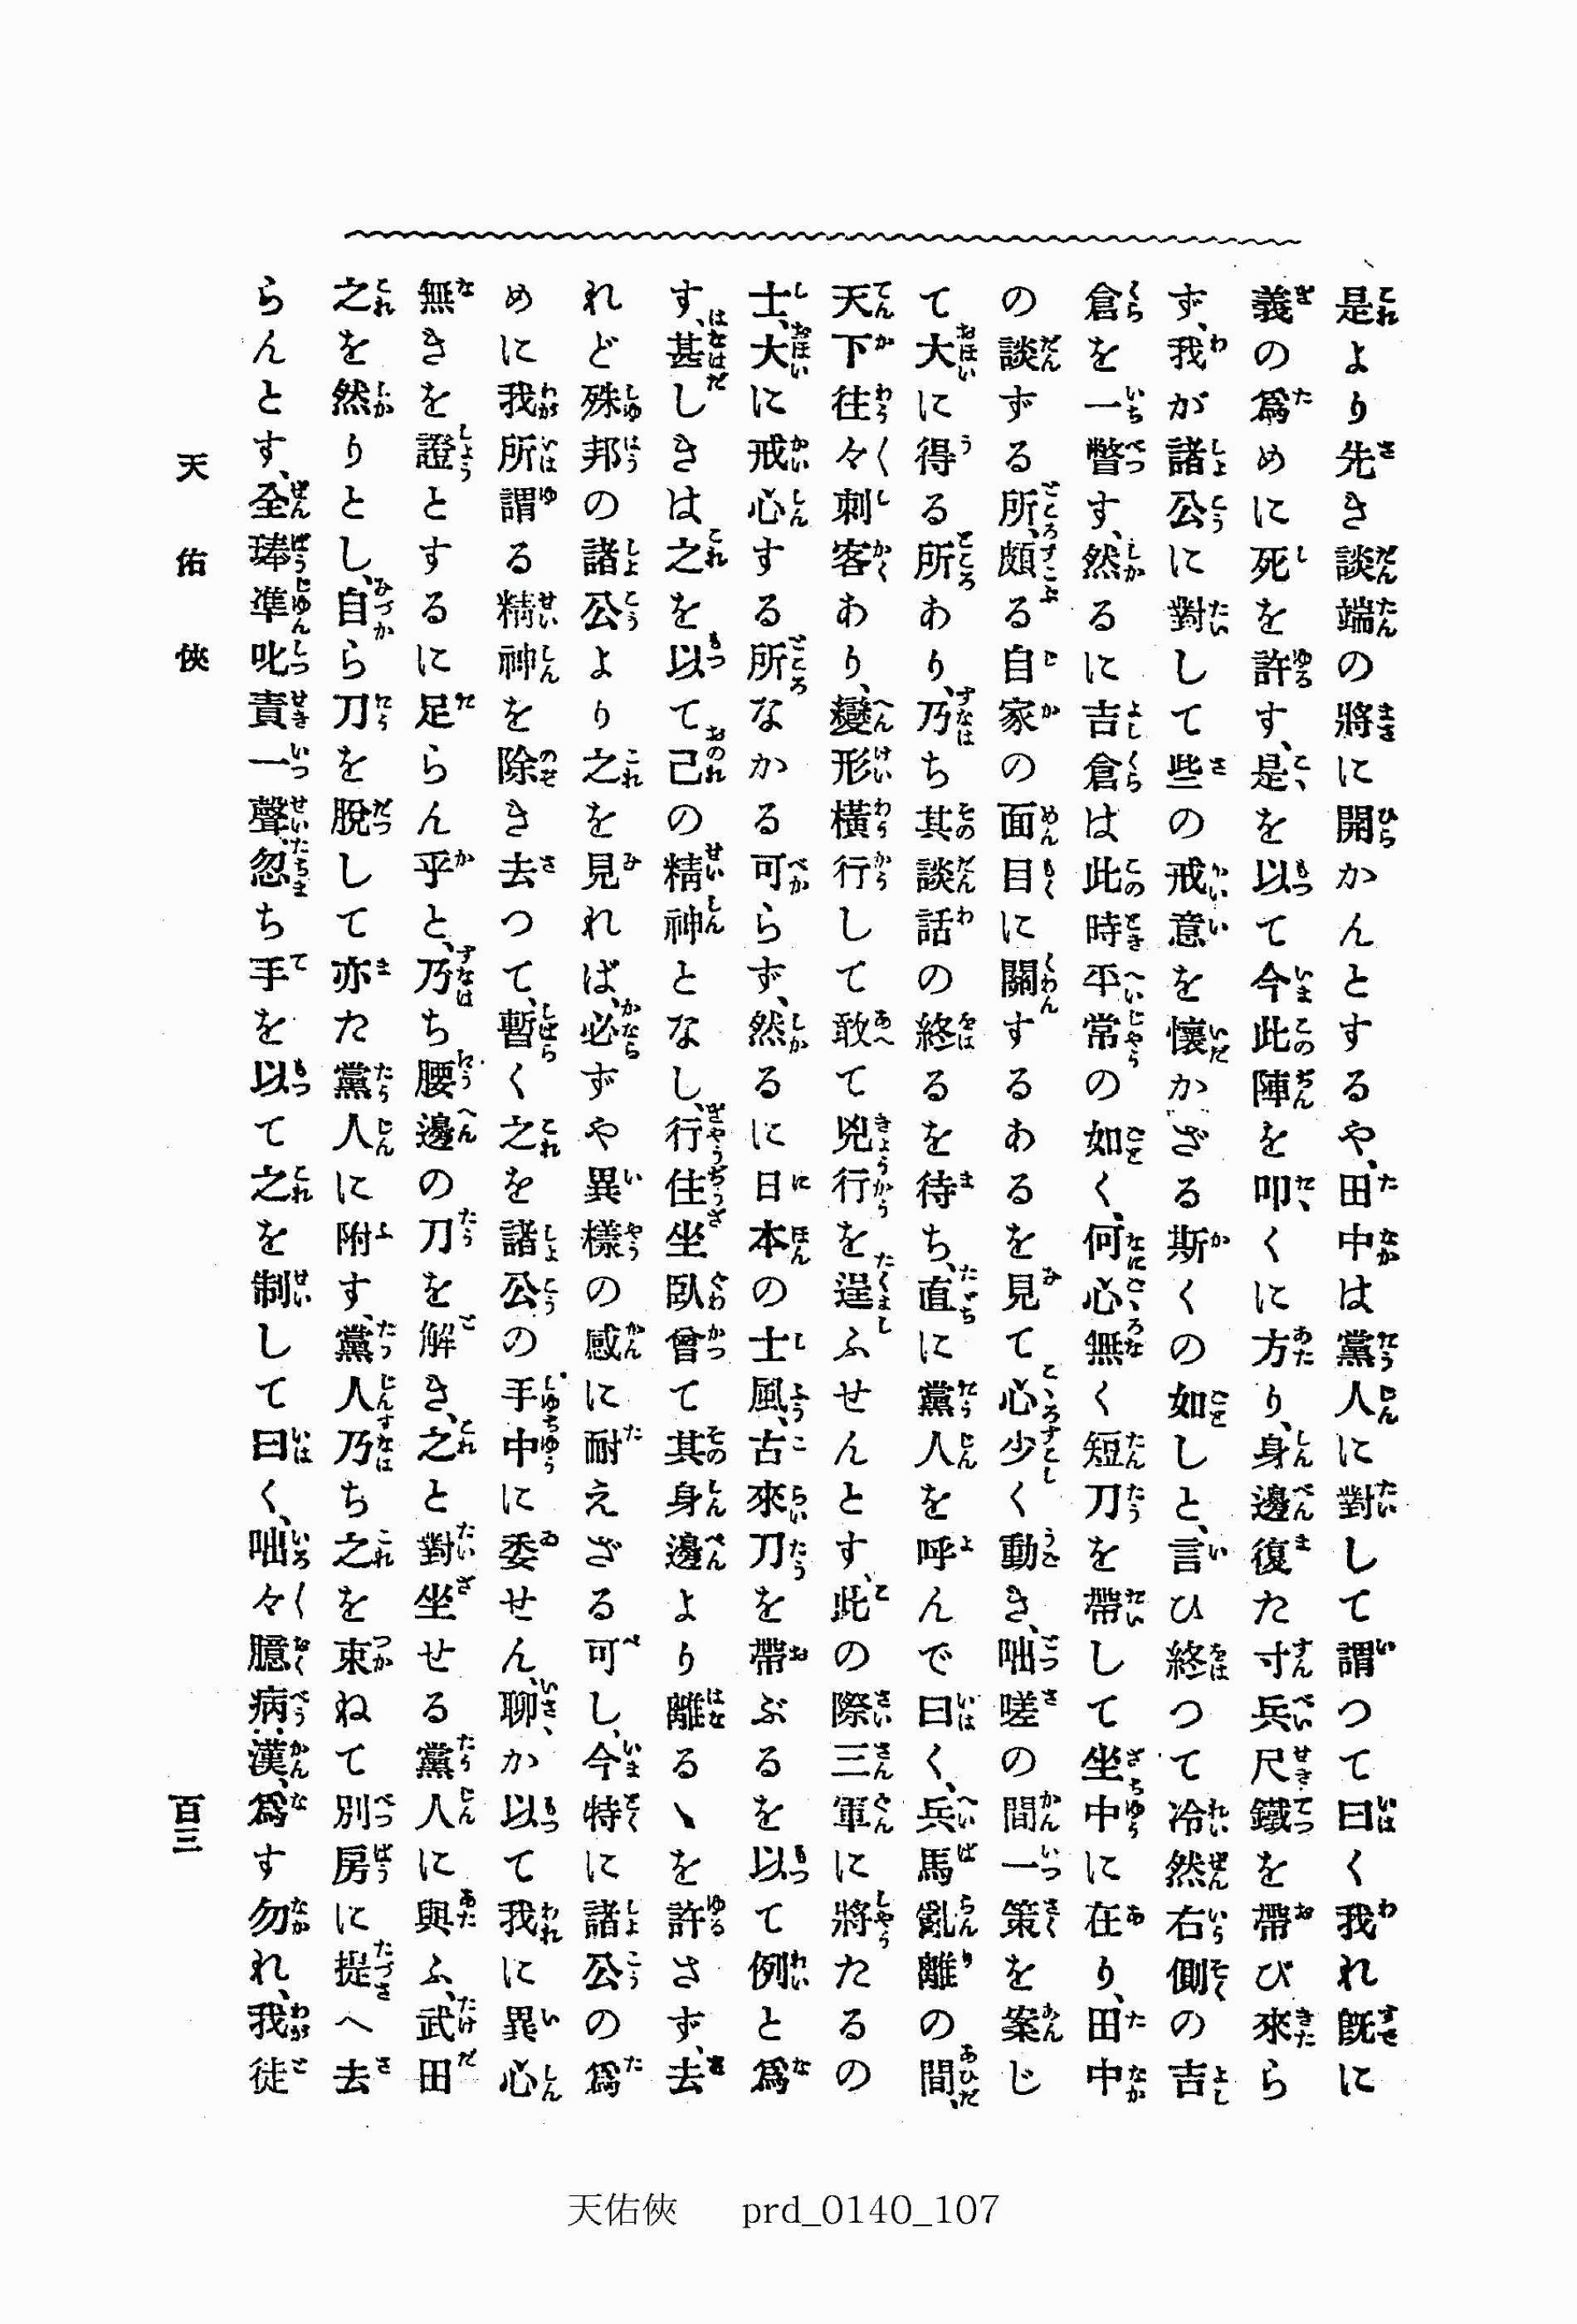 是より先き談端の將に開かんとするや、田中は黨人に對して謂つて曰く我れ既に
義の爲めに死を許す、是を以て今此陣を叩くに方り、身邊復た寸兵尺鐵を帶び來ら
ず、我が諸公に對して些の戒意を懷かざる斯くの如しと、言ひ終つて冷然右側の吉
倉を一瞥す、然るに吉倉は此時平常の如く、何心無く短刀を帶して坐中に在り、田中
の談ずる所、頗る自家の面目に關するあるを見て心少く動き、咄嗟の間一策を案じ
て大に得る所あり、乃ち其談話の終るを待ち、直に黨人を呼んで曰く、兵馬亂離の間、
天下往々刺客あり、變形橫行して敢て兇行を逞ふせんとす、此の際三軍に將たるの
士、大に戒心する所なかる可らず、然るに日本の士風、古來刀を帶ぶるを以て例と爲
す、甚しきは之を以て己の精神となし、行住坐臥曾て其身邊より離るゝを許さず、去
れど殊邦の諸公より之を見れば、必ずや異樣の感に耐えざる可し、今特に諸公の爲
めに我所謂る精神を除き去つて、暫く之を諸公の手中に委せん、聊か以て我に異心
無きを證とするに足らん乎と、乃ち腰邊の刀を解き、之と對坐せる黨人に與ふ、武田
之を然りとし、自ら刀を脫して亦た黨人に附す、黨人乃ち之を束ねて別房に提へ去
らんとす、全琫準叱責一聲、忽ち手を以て之を制して曰く、咄々臆病漢、爲す勿れ、我徒
天佑俠
百三
天佑俠 prd_0140_107